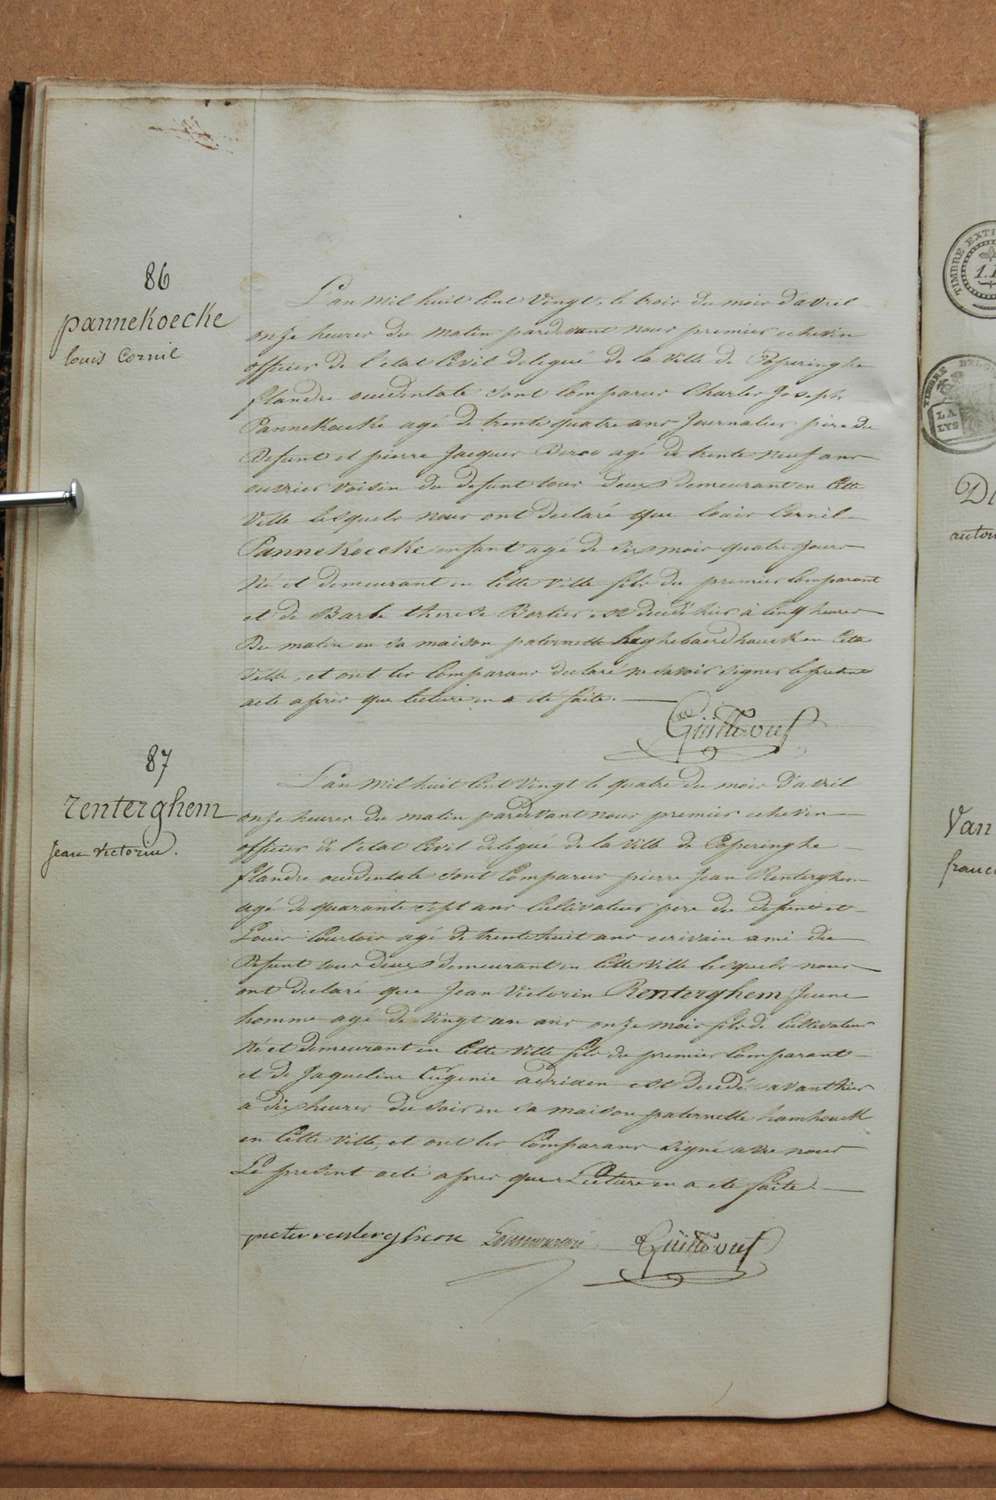 86
pannekoecke
louis Cornil
L'an mil huit Cent Vingt, le trois du mois d'avril
onze heures du matin pardevant nous premier echevin
officier de l'etat Civil delegué de la Ville de Poperinghe
flandre occidentale sont Comparus Charles Joseph
Pannekoecke agé de trente quatre ans Journalier père du
Defunt et pierre Jacques agé de trente neuf ans
ouvrier Voisin du defunt tous Deux demeurant en Cette
Ville lesquels nous ont declaré que louis Cornil
Pannekoecke enfant agé de Six mois quatre Jours
Né et demeurant en Cette Ville fils du premier Comparant
et de Barbe therese Bertier est decedé hier à Cinq heures
Du matin en sa maison paternelle en Cette
Ville, et ont les Comparans declaré ne savoir signer le present
acte après que lecture en a été faite.
87
renterghem
Jean Victorin.
L'an mil huit Cent Vingt le quatre du mois d'avril
onze heures du matin pardevant nous premier echevin
officier de l'etat Civil delegué de la Ville de Poperinghe
flandre occidentale sont Comparus pierre Jean Renterghem
agé de quarante sept ans Cultivateur pere du defunt et
Louis Courtois agé de trente huit ans ecrivain ami du
Defunt tous Deux demeurant en Cette Ville lesquels nous
ont declaré que Jean Victorin Renterghem Jeune
homme agé de Vingt un ans onze mois fils de Cultivateur
Né et demeurant en Cette Ville fils du premier Comparant
et de Jaqueline Eugenie adriaen est Decedé avanthier
a dix heures du soir en sa maison paternelle hamhoeck
en Cette Ville, et ont les Comparans signé avec nous
Le present acte apres que Lecture en a été faite.
TIMBRE EXT
TIMBRE
LA
LYS
Van